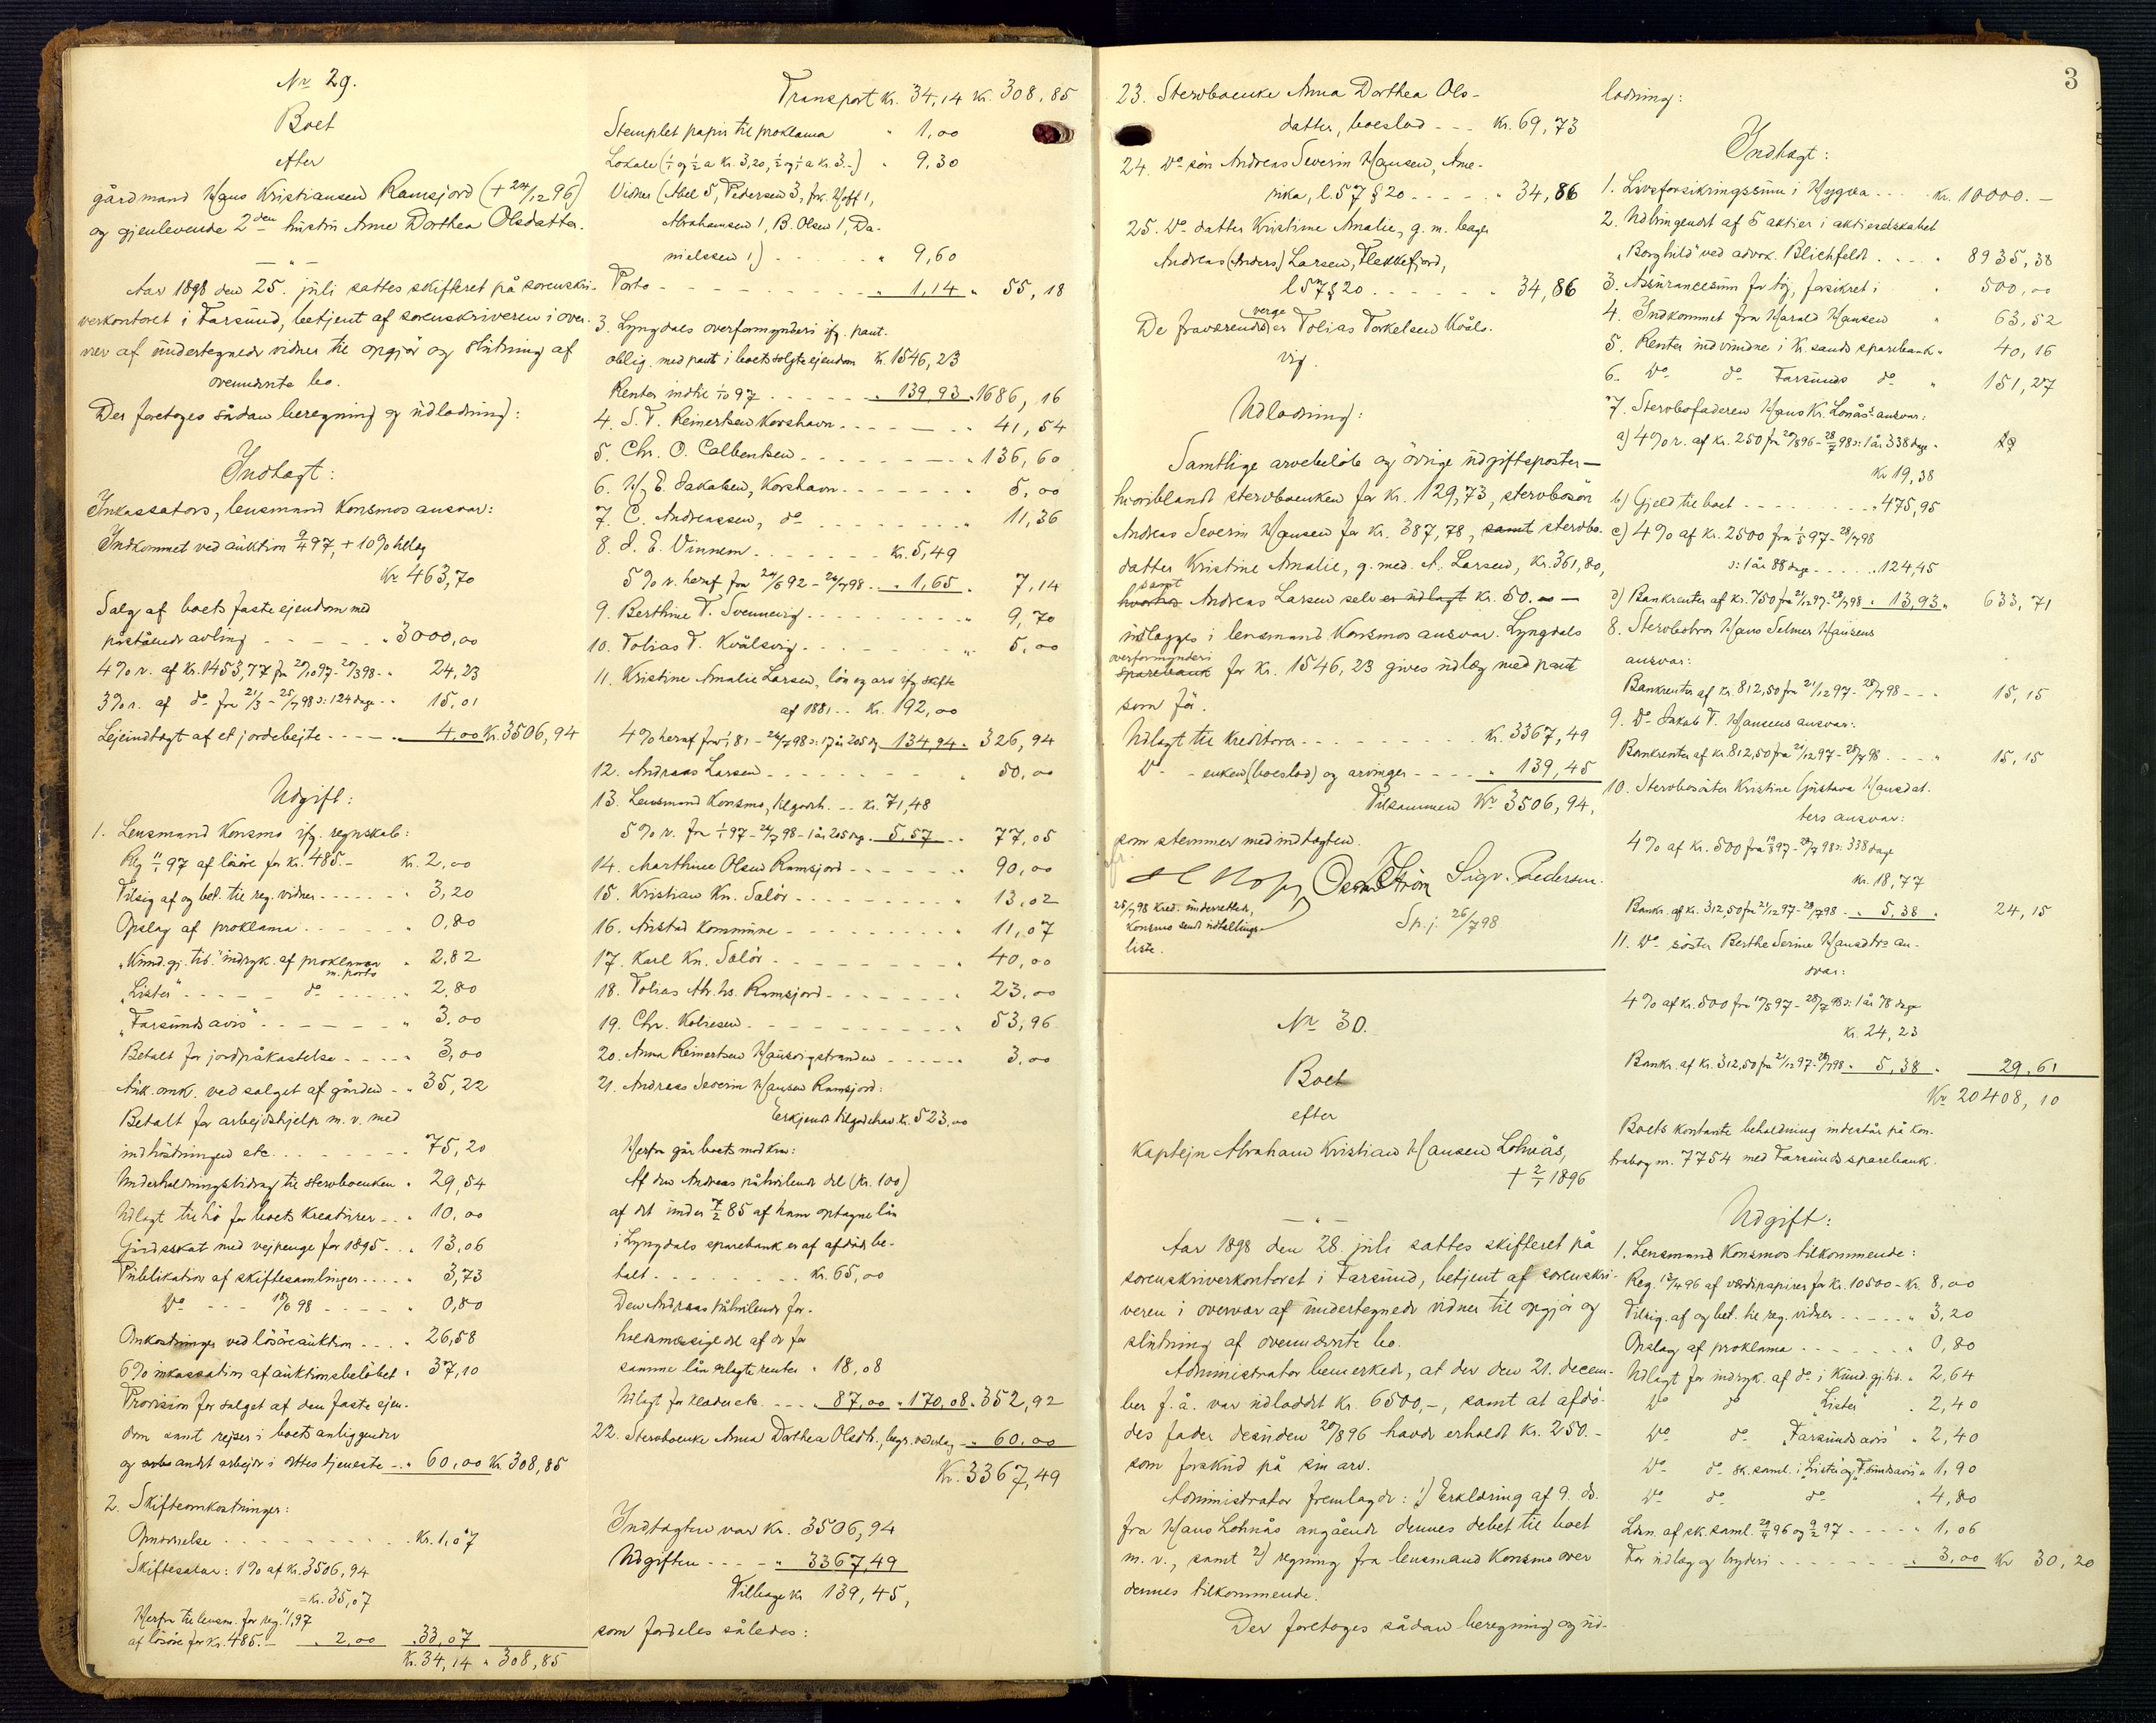 Nr 29.
Boet
efter
gårdmand Hans Kristiansen Ramsjord (+ 24/12 96)
og gjenlevende 2den hustru Anne Dorthea Olsdatter.
Aar 1898 den 25. juli sattes skifteret på sorenskri-
verkontoret i Farsund, betjent af sorenskriveren i over-
vær af undertegnede vidner til opgjør og slutning af
ovennævnte bo.
Der foretoges sådan beregning og udlodning:
Indtægt:
Inkassators, lensmand Konsmos ansvar:
Indkommet ved auktion 9/4 97, + 10% tillæg
Kr. 463,70
Salg af boets faste ejendom med
påstående avling - - - - " 3000,00
4% r. af kr. 1453,77 fra 20/10 97 - 20/3 98 - " 24,23
3% r. af do fra 21/3 - 25/7 98 ɔ: 124 dage - " 15,01
Lejeindtægt af et jordebejte - - - - " 4,00 Kr. 3506,94
Udgift:
1. Lensmand Konsmo ifg. regnskab:
Reg. 11/1 97 af løsøre for kr. 485.- kr. 2,00
Tilsig. af og bet. til reg. vidner - - - - " 3,20
Opslag af proklama - - - - " 0,80
"Kund.gj. tid." indryk. af proklama m. porto " 2,82
"Lister" - - - - do - - - - " 2,80
"Farsunds avis" - - - - " 3,00
Betalt for jordpåkastelse - - - - " 3,00
Auk. omk. ved salget af gården - " 35,22
Betalt for arbejdshjelp m. v. med
indhøstningen etc. - - - - " 75,20
Underholdningsbidrag til stervboenken " 29,54
Udlagt til hø for boets kreaturer - - " 10,00
Gårdsskat med vejpenge for 1895 - - " 13,06
Publikation af skiftesamlinger - - - - " 3,73
Do - - - 18/6 98 - - - - " 0,80
Omkostninger ved løsøreauktion - - - " 26,58
6% inkassation af auktionsbeløbet " 37,10
Provision for salget af den faste ejen-
dom samt rejser i boets anliggender
og andet arbejde i dettes tjeneste - " 60,00 Kr. 308,85
2. Skifteomkostninger:
Opnævnelse - - - - Kr. 1,07
Skiftesalær: 1% af kr. 3506,94
= kr. 35,07
Herfra til lensm. for reg. 11/1 97
af løsøre for kr. 485.- " 2,00 " 33,07
Kr. 34,14 " 308,85
Transport kr. 34,14 kr. 308,85
Stemplet papir til proklama " 1,00
Lokale (1/1 og 1/2 a kr. 3,20, 1/2 og 1/1 a kr. 3.-) " 9,30
Vidner (Abel 5, Pedersen 3, frk. Hoff 1,
Abrahamsen 1, B. Olsen 1, Da-
nielssen 1) - - - - " 9,60
Porto - - - - " 1,14 " 55,18
3. Lyngdals overformynderi ifg. pant.
oblig. med pant i boets solgte ejendom kr. 1546,23
Renter indtil 1/10 97 - - - - " 139,93 " 1686,16
4. S. T. Reinertsen Korshavn - - - - " 41,54
5. Chr. O. Calbentsen - - - - " 136,60
6. H. E. Jakobsen, Korshavn - - - - " 5,00
7. C. Andreassen, do - - - - " 11,36
8. J. E. Vinnem - - - - kr. 5,49
5% r. heraf fra 24/6 92 - 24/7 98 " 1,65 " 7,14
9. Berthine T. Svennevig - - - - " 9,70
10. Tobias T. Kvålsvig - - - - " 5,00
11. Kristine Amalie Larsen, løn og arv ifg. skifte
af 1881 - - kr. 192,00
4% heraf fra 1/1 81 - 24/7 98 ɔ: 17 år 205 dg. 134,94 " 326,94
12. Andreas Larsen - - - - " 50,00
13. Lensmand Konsmo, tilgodeh. - - kr. 71,48
5% r. fra 1/1 97 - 24/7 98 - 1 år 205 dg. " 5,57 " 77,05
14. Marthine Olsen Ramsjord - - - - " 90,00
15. Kristian Kn. Salør - - - - " 13,02
16. Austad kommune - - - - " 11,07
17. Karl Kn. Salør - - - - " 40,00
18. Tobias Ab. hs. Ramsjord - - - - " 23,00
19. Chr. Kolnesen - - - - " 53,96
20. Anna Reinertsen Haugsorgstranden - - - - " 3,00
21. Andreas Severin Hansen Ramsjord:
Erkjendt tilgodehav. kr. 523,00
Herfra går boets modkrav:
Af den Andreas påhvilende del (kr. 100)
af det under 7/2 85 af ham optagne lån
i Lyngdals sparebank er af afdøde be-
talt - - - - kr. 65,00
Den Andreas påhvilende for-
holdsmæssige del af de for
samme lån erlagte renter " 18,08
Udlagt for klæder etc. - - - " 87,00 " 170,08 " 352,92
22. Stervboenke Anna Dorthea Olsdtr., begr. vederlag - " 60,00
Kr. 3367,49
Indtægten var kr. 3506,94
Udgiften - - - - " 3367,49
Tilbage kr. 139,45,
som fordeles således:
23. Stervboenke Anna Dorthea Ols-
datter, boeslod - - - kr. 69,73
24. Do søn Andreas Severin Hansen, Ame-
rika, l. 57 § 20 - - - - " 34,86
25. Do datter Kristine Amalie, g. m. bager
Andreas (Anders) Larsen, Flekkefjord,
l. 57 § 20 - - - - " 34,86
De fraværendes verge er Tobias Torkelsen Kvåls-
vig.
Udlodning:
Samtlige arvebeløb og øvrige udgiftsposter —
hvoriblandt stervboenken for kr. 129,73, stervbosøn
Andreas Severin Hansen for kr. 387,78, samt stervbo-
datter Kristine Amalie, g. med A. Larsen, kr. 361,80,
samt
hvorhos Andreas Larsen selv er udlagt kr. 50.00 —
udlægges i lensmand Konsmos ansvar. Lyngdals
overformynderi
sparebank for kr. 1546,23 gives udlæg med pant
som før.
Udlagt til kreditorer - - - - kr. 3367,49
Do - enken (boeslod) og arvinger - - - - " 139,45
Tilsammen Kr. 3506,94,
som stemmer med indtægten.
Oscar Strøm Sigv. Pedersen.
25/7 98 Kred. underrettede,
Konsmo sendt udtællings-
liste.
Sp. j. 26/7 98
Nr 30.
Boet
efter
kaptejn Abraham Kristian Hansen Lohnås,
+ 2/1 1896
Aar 1898 den 28. juli sattes skifteret på
sorenskriverkontoret i Farsund, betjent af sorenskri-
veren i overvær af undertegnede vidner til opgjør og
slutning af ovennævnte bo.
Administrator bemerkede, at der den 21. decem-
ber f. å. var udloddet kr. 6500,-, samt at afdø-
des fader desuden 20/8 96 havde erholdt kr. 250.-
som forskud på sin arv.
Administrator fremlagde: 1) Erklæring af 9. ds.
fra Hans Lohnås angående dennes debet til boet
m. v., samt 2) regning fra lensmand Konsmo over
dennes tilkommende.
Der foretoges sådan beregning og ud-
3
lodning:
Indtægt:
1. Livsforsikringssum i Hygæa - - - - kr. 10000.-
2. Udbringendet af 5 aktier i aktieselskabet
"Borghild" ved advok. Blichfeldt - - - - " 8935,38
3. Assurancesum for tøj, forsikret i " 500,00
4. Indkommet fra Harald Hansen " 63,52
5. Renter indvundne i Kr.sands sparebank " 40,16
6. Do do Farsunds do " 151,27
7. Stervbofaderen Hans Kr. Lonås's ansvar:
a) 4% r. af kr. 250 fra 20/8 96 - 28/7 98 ɔ: 1 år 338 dage -
kr. 19,38
b) Gjeld til boet - - - - " 475,95
c) 4% af kr. 2500 fra 1/5 97 - 28/7 98
ɔ: 1 år 88 dage - - - - " 124,45
d) Bankrenter af kr. 750 fra 21/12 97 - 28/7 98 " 13,93 " 633,71
8. Stervbobror Hans Selmer Hansens
ansvar:
Bankrenter af kr. 812,50 fra 21/12 97 - 28/7 98 - - " 15,15
9. Do Jakob T. Hansens ansvar:
Bankrenter af kr. 812,50 fra 21/12 97 - 28/7 98 - - " 15,15
10. Stervbosøster Kristine Gustava Hansdat-
ters ansvar:
4% af kr. 500 fra 19/8 97 - 28/7 98 ɔ: 338 dage
kr. 18,77
Bankr. af kr. 312,50 fra 21/12 97 - 28/7 98 - " 5,38 " 24,15
11. Do søster Berthe Serine Hansdtrs an-
svar:
4% af kr. 500 fra 10/5 97 - 28/7 98 ɔ: 1 år 78 dage
kr. 24,23
Bankr. af kr. 312,50 fra 21/12 97 - 28/7 98 " 5,38 " 29,61
Kr. 20408,10
Boets kontante beholdning indestår på kon-
trabog nr. 7754 med Farsunds sparebank.
Udgift:
1. Lensmand Konsmos tilkommende:
Reg. 13/4 96 af værdipapirer for kr. 10500 - kr. 8,00
Tilsig. af og bet. til reg. vidner - - - - " 3,20
Opslag af proklama - - - - " 0,80
Udlagt for indryk. af do i Kund.gj.tid. " 2,64
Do do "Lister" " 2,40
Do do "Farsunds avis" " 2,40
Do do sk. saml. i "Lister" og "F.sunds avis" " 1,90
Do do do " 4,80
Ldsn. af sk. saml. 29/4 96 og 9/2 97 - - - - " 1,06
For udlæg og bryderi - - - - " 3,00 kr 30,20